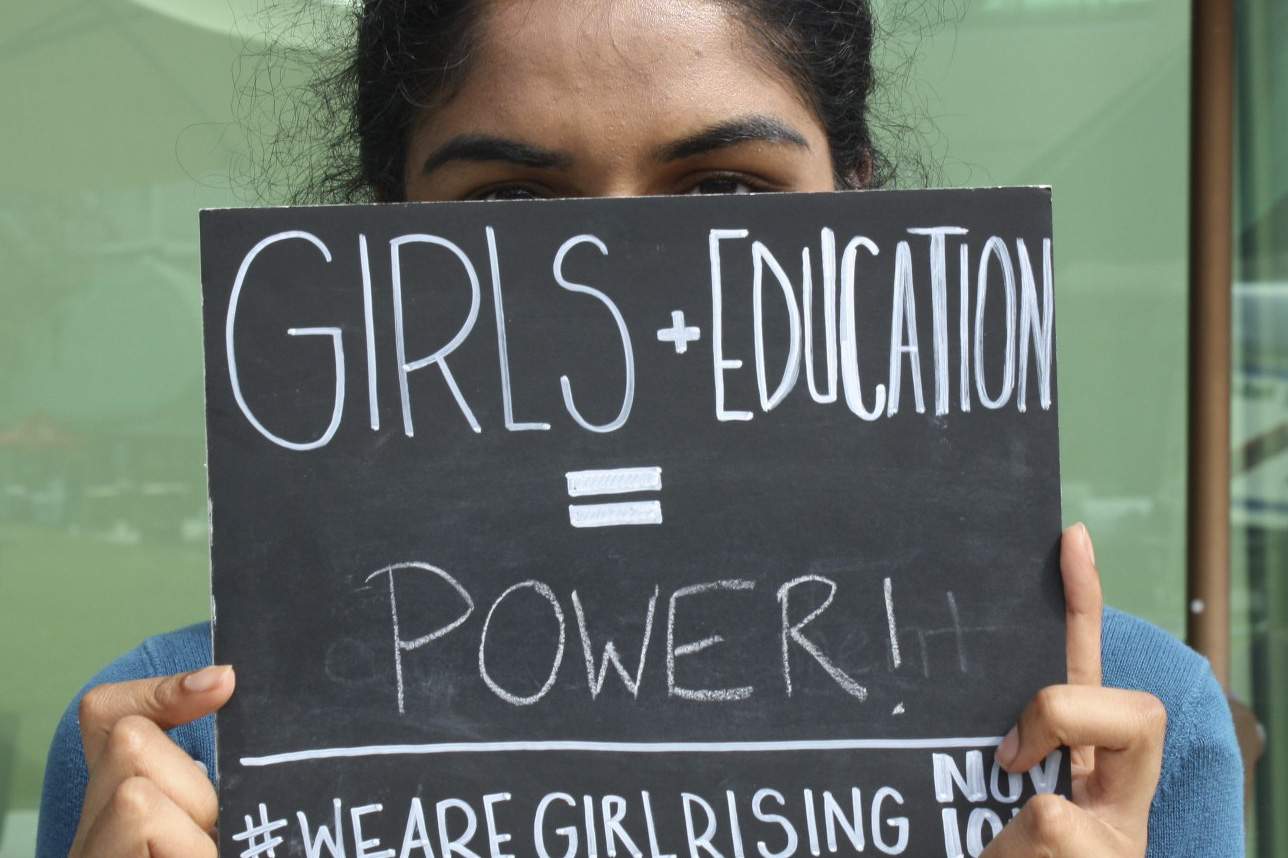 GIRLS + EDUCATION
=
POWER!
#WEAREGIRLRISING NOV